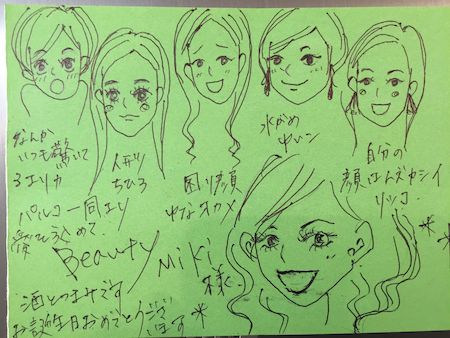 なんか
いつも驚いて
るエリカ
ちひろ
困り顔
水がめ
自分の
顔はムズカシイ
パルコ一同より
込めて.
Beauty Miki 様
酒とつまみです
お誕生日おめでとうございます*